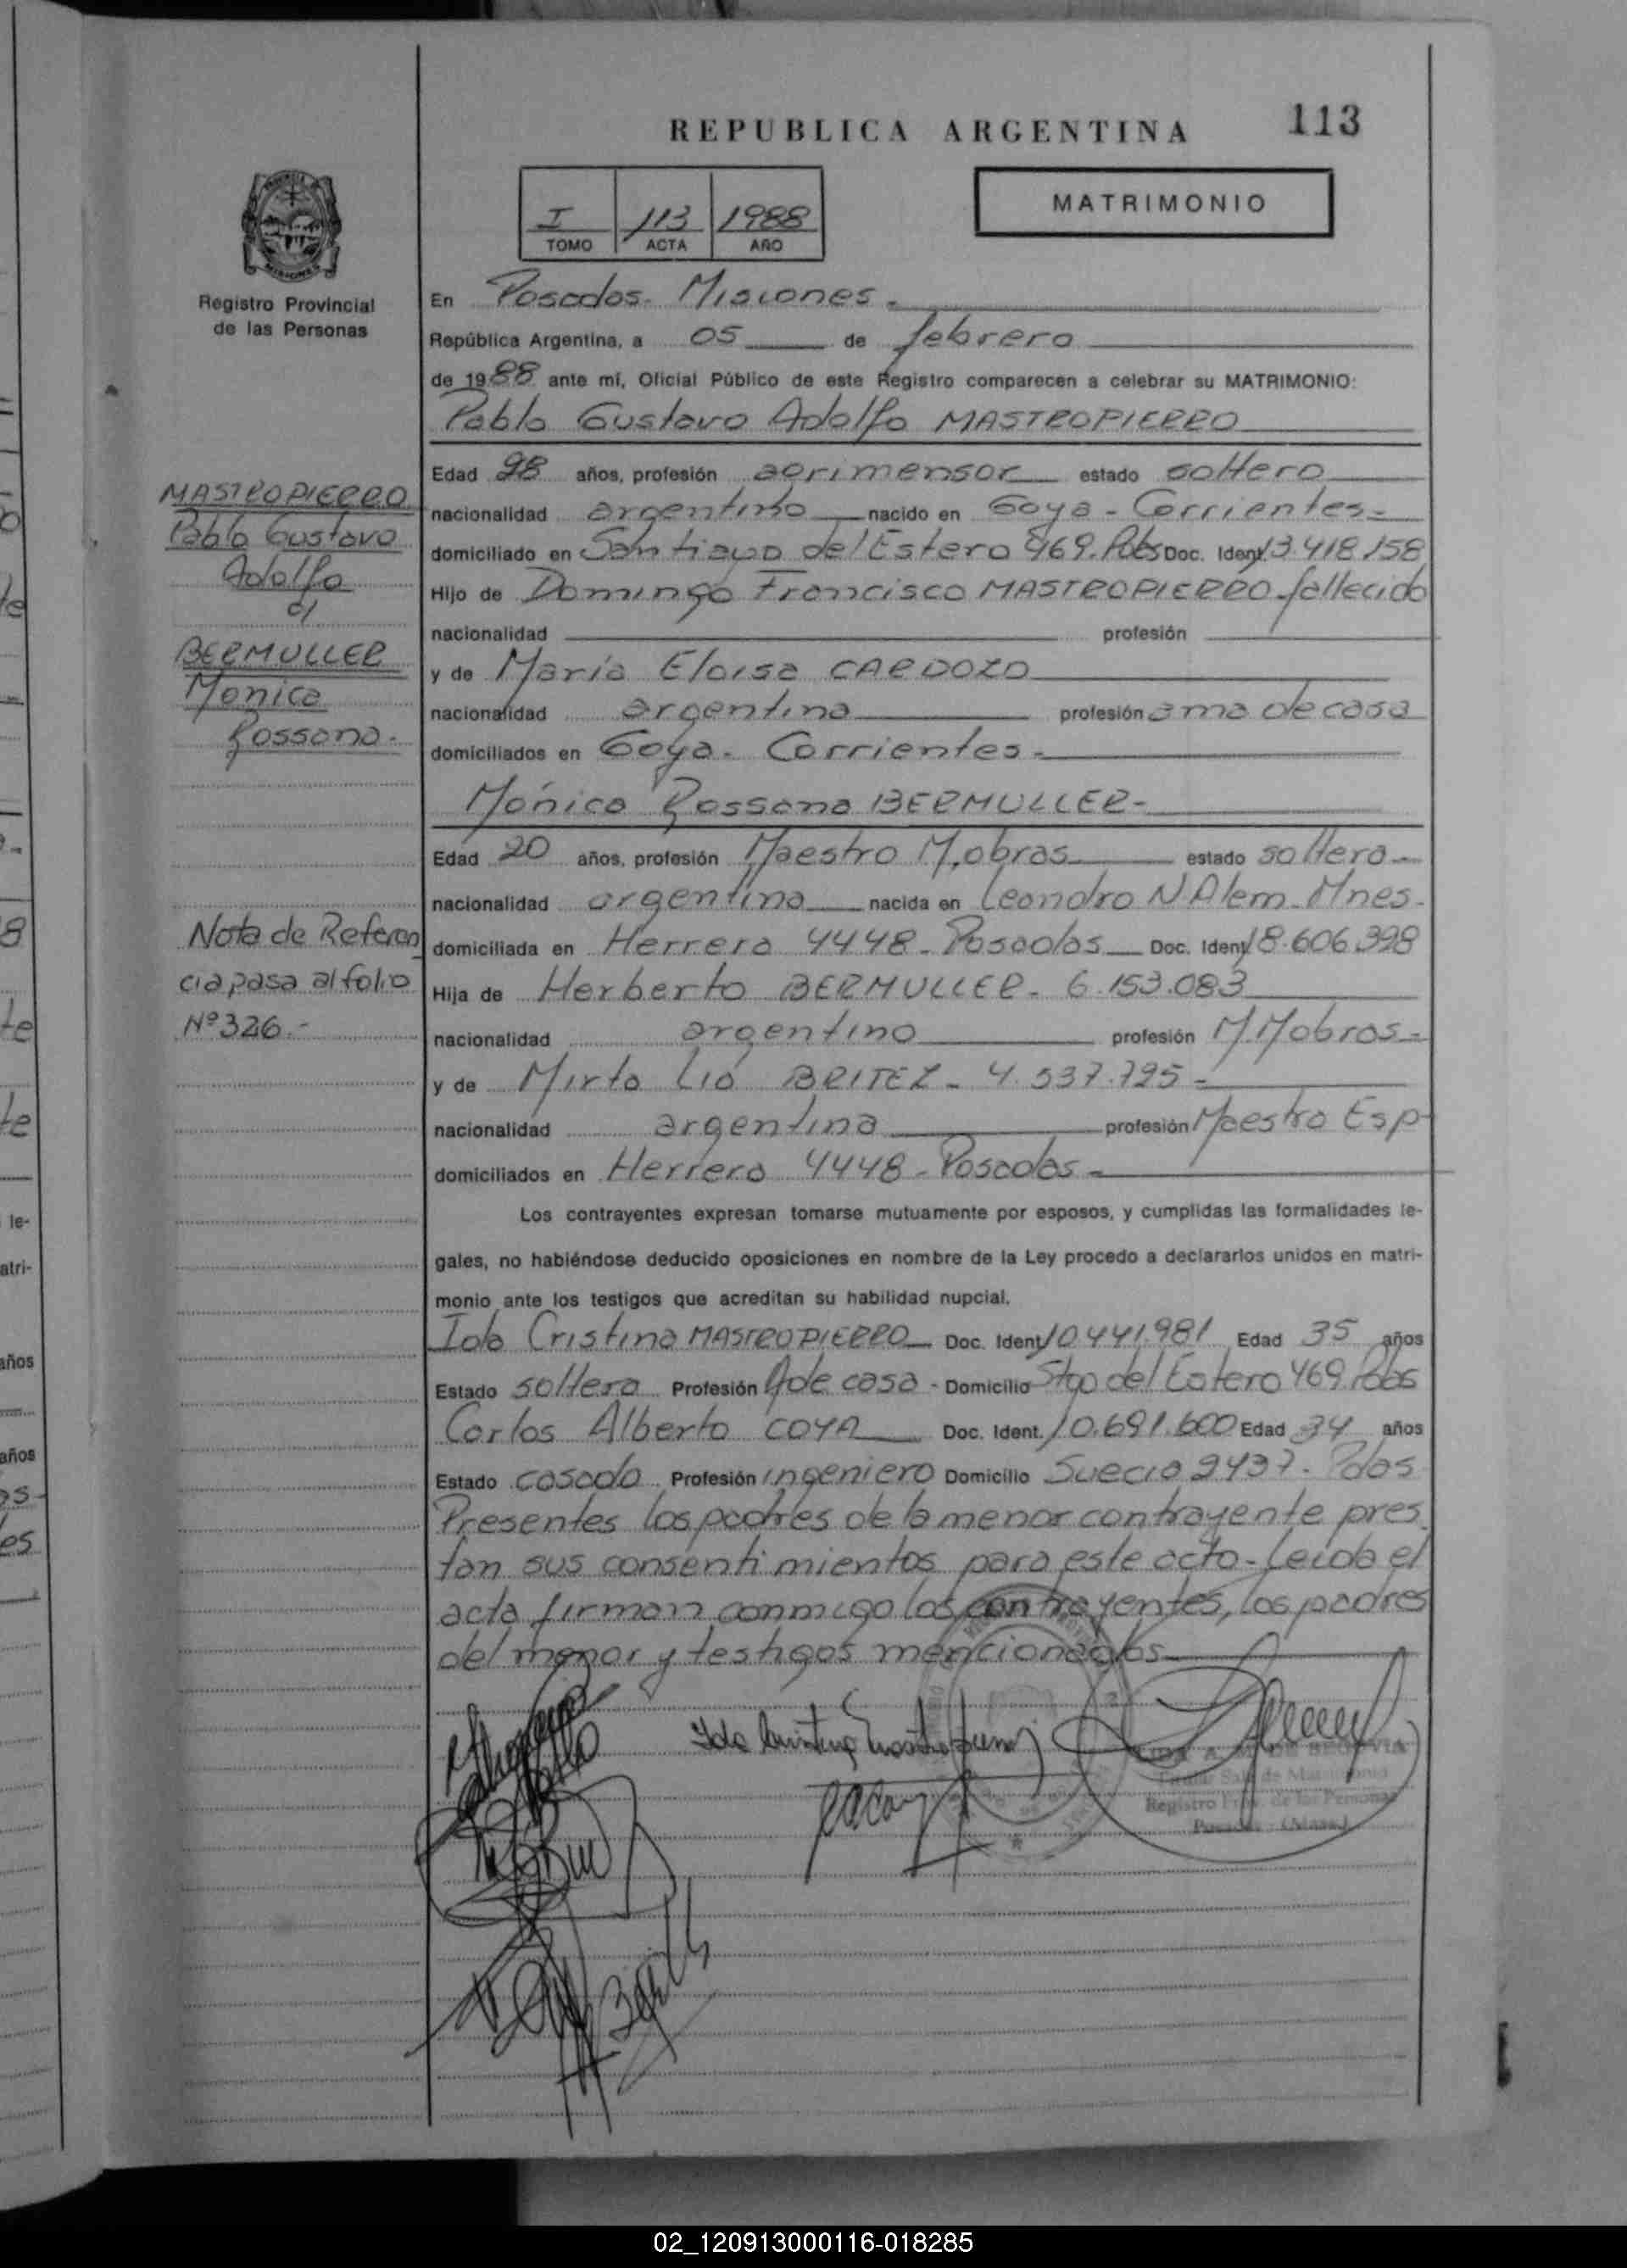 REPUBLICA ARGENTINA
113
I
TOMO
113
ACTA
1988
AÑO
MATRIMONIO
PROVINCIA DE
MISIONES
Registro Provincial
de las Personas
En Posadas. Misiones.
República Argentina, a 05 de febrero
de 1988 ante mí, Oficial Público de este Registro comparecen a celebrar su MATRIMONIO:
Pablo Gustavo Adolfo MASTROPIERRO
Edad 28 años, profesión agrimensor estado soltero
nacionalidad argentino nacido en Goya - Corrientes-
domiciliado en Santiago del Estero 469. Doc. Ident. 13.418.158
Hijo de Domingo Francisco MASTROPIERRO. fallecido
nacionalidad profesión
y de María Eloisa CARDOZO
nacionalidad argentina profesión ama de casa
domiciliados en Goya. Corrientes-
Mónica Rossana BERMULLER-
Edad 20 años, profesión Maestra M.obras estado soltera-
nacionalidad argentina nacida en Leandro N Alem. Mnes.
domiciliada en Herrera 4448 - Posadas Doc. Ident 18.606.398
Hija de Herberto BERMULLER - 6.153.083
nacionalidad argentino profesión M.Mobras-
y de Mirta Lia BRITEZ - 4.537.795-
nacionalidad argentina profesión Maestra Esp-
domiciliados en Herrera 4448 - Posadas-
Los contrayentes expresan tomarse mutuamente por esposos, y cumplidas las formalidades le-
gales, no habiéndose deducido oposiciones en nombre de la Ley procedo a declararlos unidos en matri-
monio ante los testigos que acreditan su habilidad nupcial.
Ida Cristina MASTROPIERRO Doc. Ident 10.441.981 Edad 35 años
Estado soltera Profesión A de casa - Domicilio Stgo del Estero 469.
Carlos Alberto COYA Doc. Ident. 10.691.600 Edad 34 años
Estado casado Profesión ingeniero Domicilio Suecia 2437. Pdas
Presentes los padres de la menor contrayente pres
tan sus consentimientos para este acto- Leida el
acta firman conmigo los contrayentes, los padres
del menor y testigos mencionados
MASTROPIERRO
Pablo Gustavo
Adolfo
c/
BERMULLER
Monica
Rossana.
Nota de Referen
cia pasa al folio
Nº 326.-
DE SEGOVIA
Titular Sala de Matrimonio
Registro Prov. de las Personas
Posadas - (Mnes.)
02_120913000116-018285